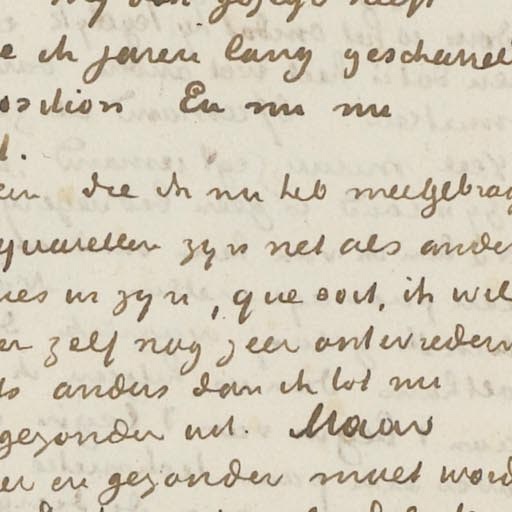 heeft
e ik jaren lang gescharrel
osition En nu nu
t.
die ik nu heb meegebrag
quarellen zyn net als ander
ies in zyn, que soit, ik wil
er zelf nog zeer ontevreden
ts anders dan ik tot nu
gezonder uit. Maar
er en gezonder moet word